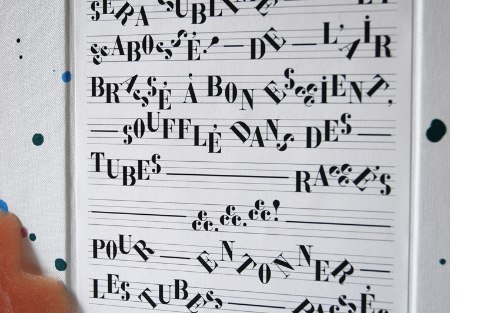 SERA SUBLIME — ET
& CABOSSÉ! — DE — L'AIR
BRASSÉ À BON ESCIENT,
— SOUFFLÉ DANS DES —
TUBES
&c. &c. &c!
POUR — ENTONNER —
LES TUBES —